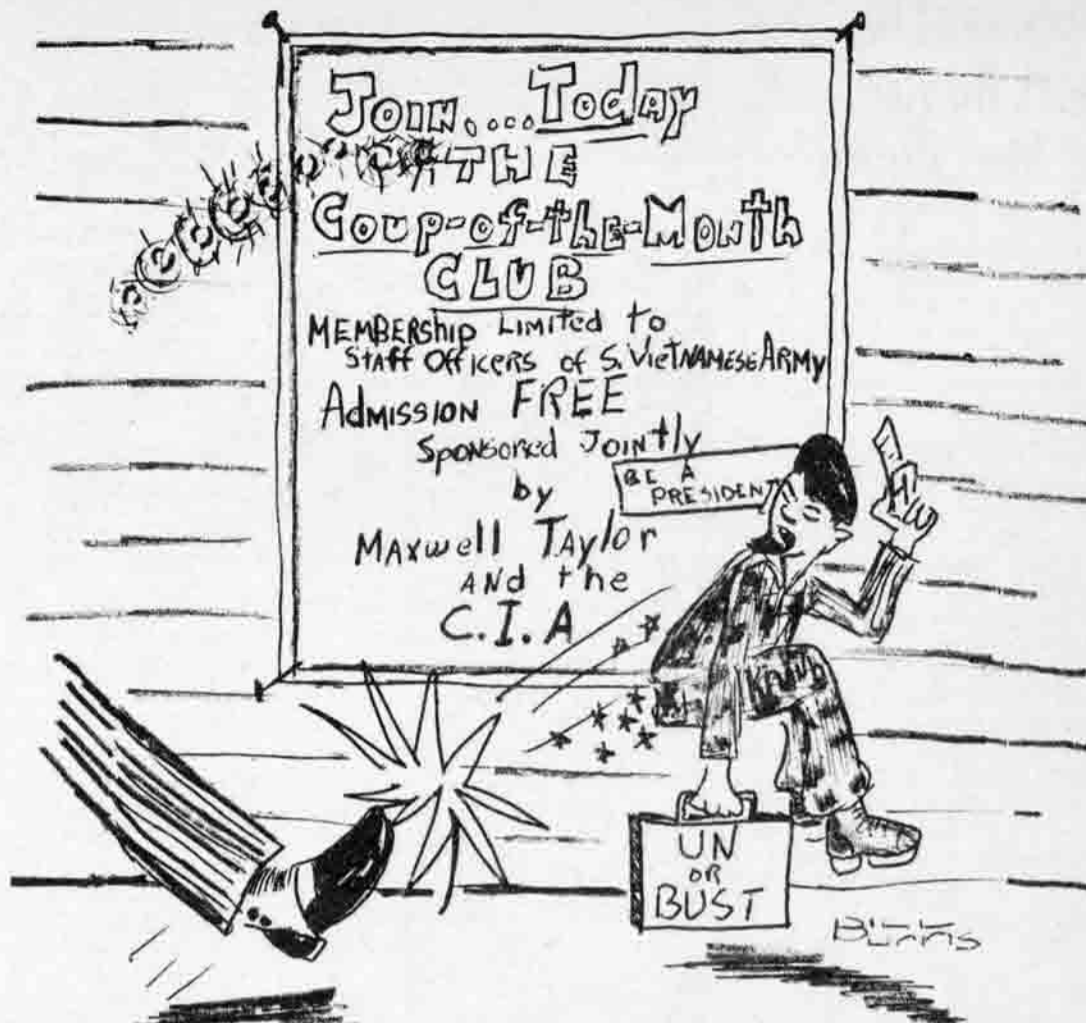 JOIN....TODAY
THE
COUP-of-the-MONth
CLUB
MEMBERShip LIMITED to
STAFF OffICERS of S. VIETNAMESE ARMY
AdMISSION FREE
SPONSORED JOINtly
by
MAXWell TAylor
ANd the
C.I.A
BE A
PRESIDENT
UN
OR
BUST